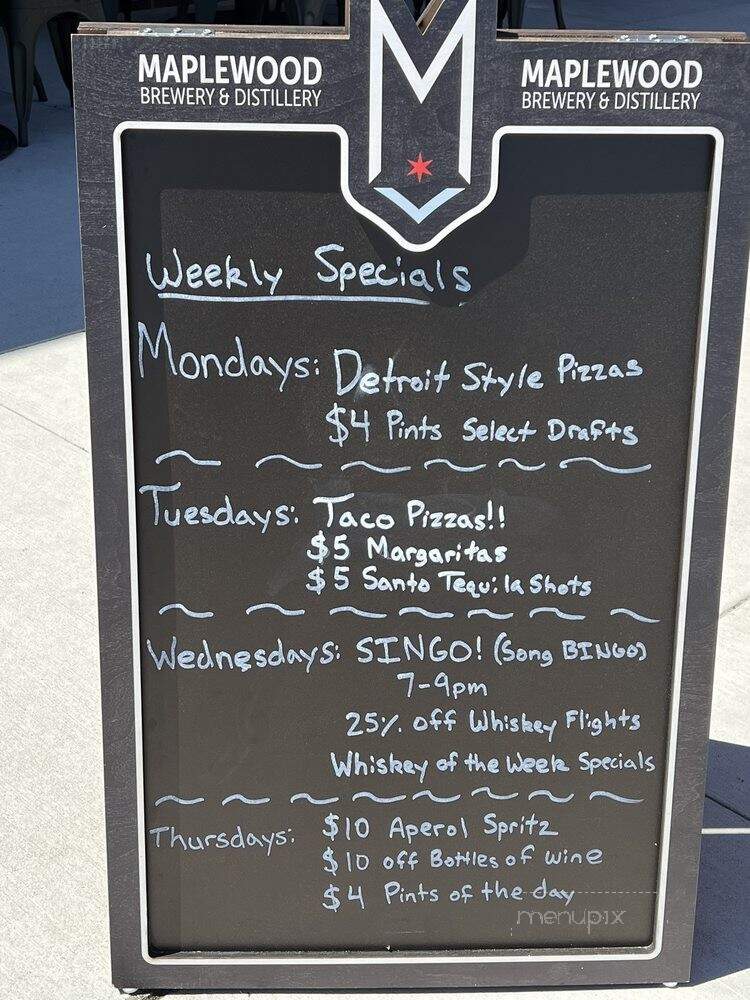 MAPLEWOOD
BREWERY & DISTILLERY
M
MAPLEWOOD
BREWERY & DISTILLERY
Weekly Specials
Mondays: Detroit Style Pizzas
$4 Pints Select Drafts
Tuesdays: Taco Pizzas!!
$5 Margaritas
$5 Santo Tequila Shots
Wednesdays: SINGO! (Song BINGO)
7-9pm
25% off Whiskey Flights
Whiskey of the Week Specials
Thursdays: $10 Aperol Spritz
$10 off Bottles of wine
$4 Pints of the day
menupix